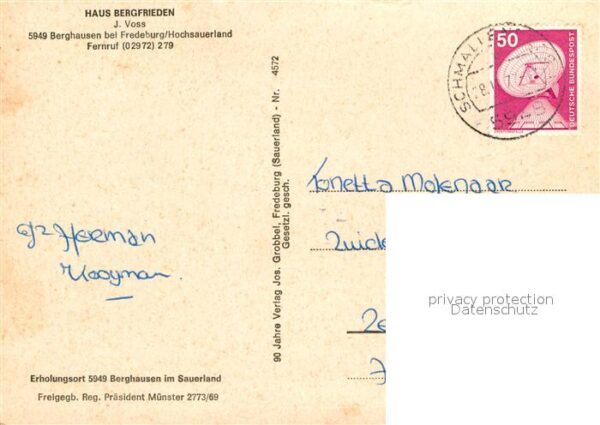 HAUS BERGFRIEDEN
J. Voss
5949 Berghausen bei Fredeburg/Hochsauerland
Fernruf (02972) 279
50
DEUTSCHE BUNDESPOST
SCHMALLE
90 Jahre Verlag Jos. Grobbel, Fredeburg (Sauerland) - Nr. 4572
Gesetzl. gesch.
Tonetta Molenaar
Zuid
Herman
Kooyman.
privacy protection
Datenschutz
Erholungsort 5949 Berghausen im Sauerland
Freigegb. Reg. Präsident Münster 2773/69